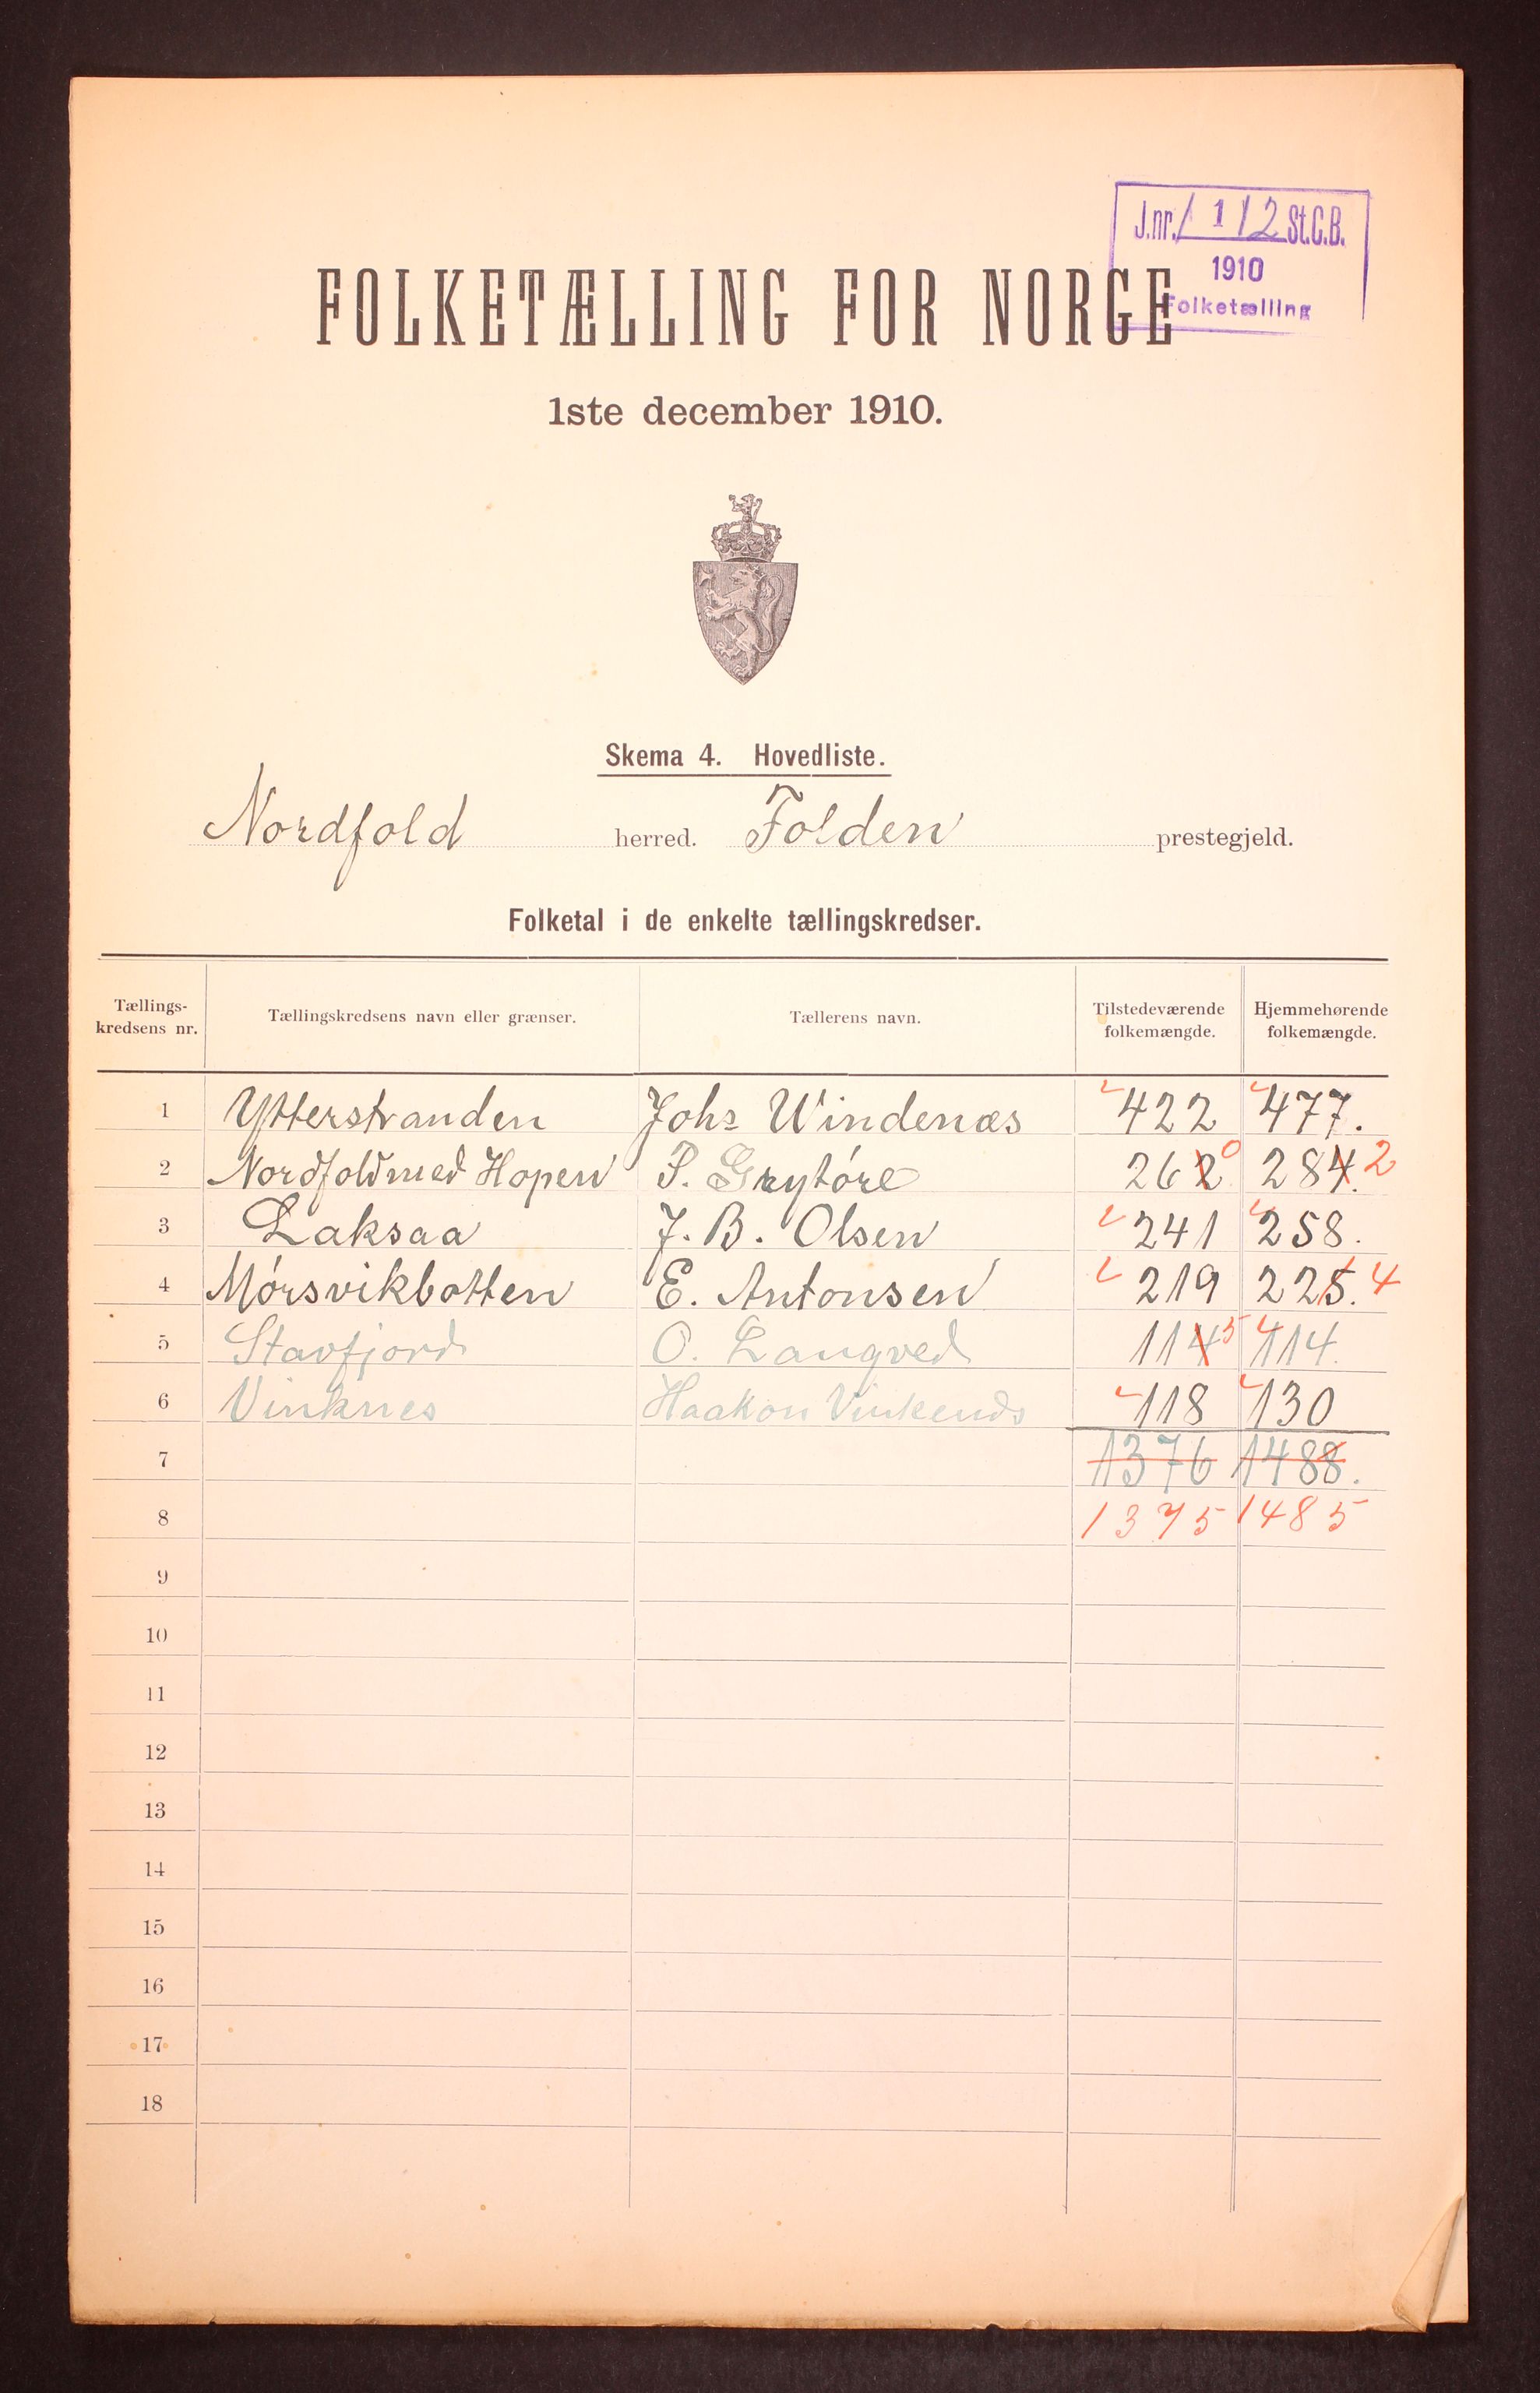 J.nr. 112 St.C.B.
1910
Folketælling
FOLKETÆLLING FOR NORGE
1ste december 1910.
Skema 4. Hovedliste.
Nordfold herred. Folden prestegjeld.
Folketal i de enkelte tællingskredser.
Tællings-kredsens nr. Tællingskredsens navn eller grænser. Tællerens navn. Tilstedeværende folkemængde. Hjemmehørende folkemængde.
1 Ytterstranden Johs Windenæs 422 477.
2 Nordfold med Hopen P. Grytóre 262 0 284. 2
3 Laksaa J. B. Olsen 241 258.
4 Mórsvikbotten E. Antonsen 219 225. 4
5 Stavfjord O. Langved 114 5 114.
6 Vinknes Haakon 118 130
7 1376 1488.
8 1375 1485
9
10
11
12
13
14
15
16
17
18